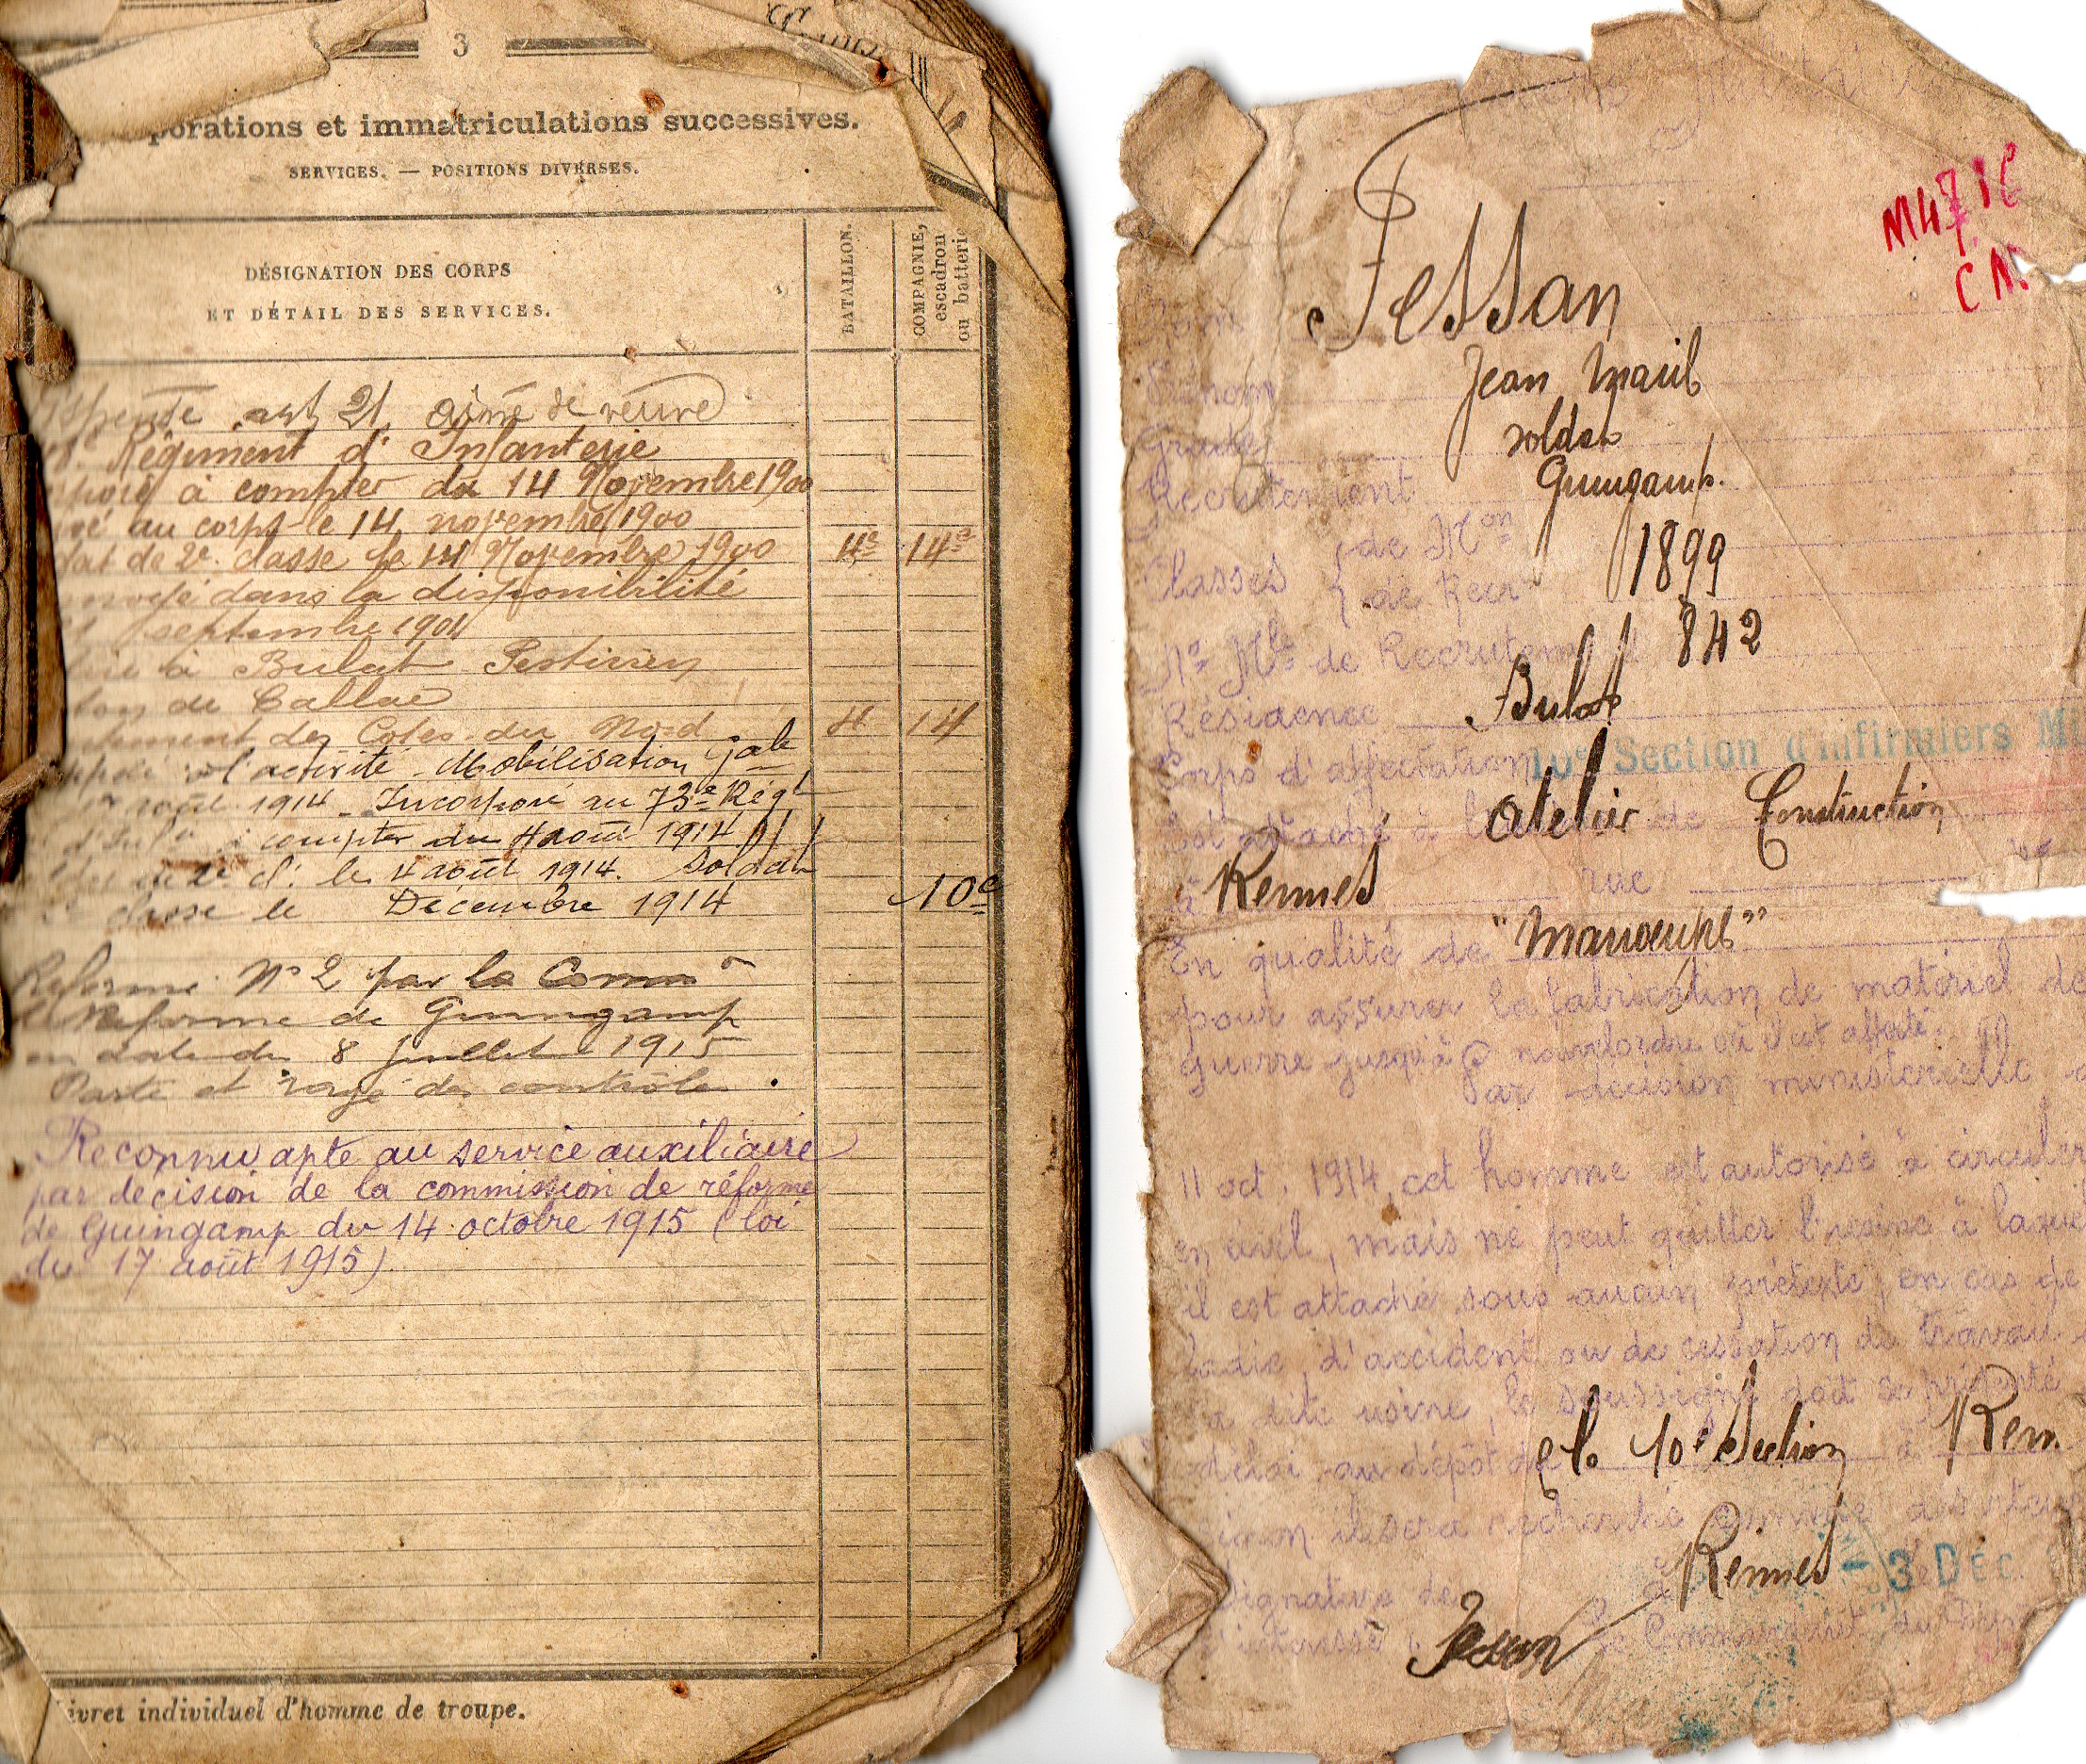 3
porations et immatriculations successives.
SERVICES. — POSITIONS DIVERSES.
DÉSIGNATION DES CORPS
ET DÉTAIL DES SERVICES.
BATAILLON.
COMPAGNIE,
escadron
ou batterie
art 21 aîné de veuve
Régiment d'Infanterie
à compter du 14 Novembre 1900
au corps le 14 novembre 1900
dat de 2e classe le 14 Novembre 1900 4e 14e
dans la disponibilité
septembre 1901
à Bulat Pestivien
ton de Callac
ement des Cotes-du Nord 4 14
l'activité - Mobilisation gale
août 1914 - Incorporé au 73e Régt
à compter du 4 août 1914
cl. le 4 août 1914. Soldat
classe le Décembre 1914 10e
Réformé N° 2 par la Comon
Réforme de Guingamp
en date du 8 Juillet 1915
et rayé des contrôles.
Reconnu apte au service auxiliaire
par decision de la commission de réforme
de Guingamp du 14 octobre 1915 (loi
du 17 août 1915)
ivret individuel d'homme de troupe.
M47
C N
Nom Fessan
Prénom Jean Marie
Grade soldat
Recrutement Guingamp.
Classes { de Mon
{ de Recr 1899
N° Mle de Recrutement 842
Résidence Bulat
Corps d'affectation 10e Section d'infirmiers Mi
Est attaché à l' atelier de Construction
à Rennes rue
En qualité de "Manoeuvre"
pour assurer la fabrication de matériel de
guerre jusqu'à nouvel ordre où il est affecté.
Par décision ministerielle
11 oct. 1914, cet homme est autorisé à circuler
en civil, mais ne peut quitter l'usine à laquel
il est attaché sous aucun prétexte, en cas de
ladie, d'accident ou de cessation de travail
la dite usine, le soussigné doit se présenté
délai au dépôt de la 10e Section à Renn
sinon il sera recherché comme déserteur
à Rennes le 3 DEC.
Signature de
l'intéressé Le Commandant du Dép
Fessan